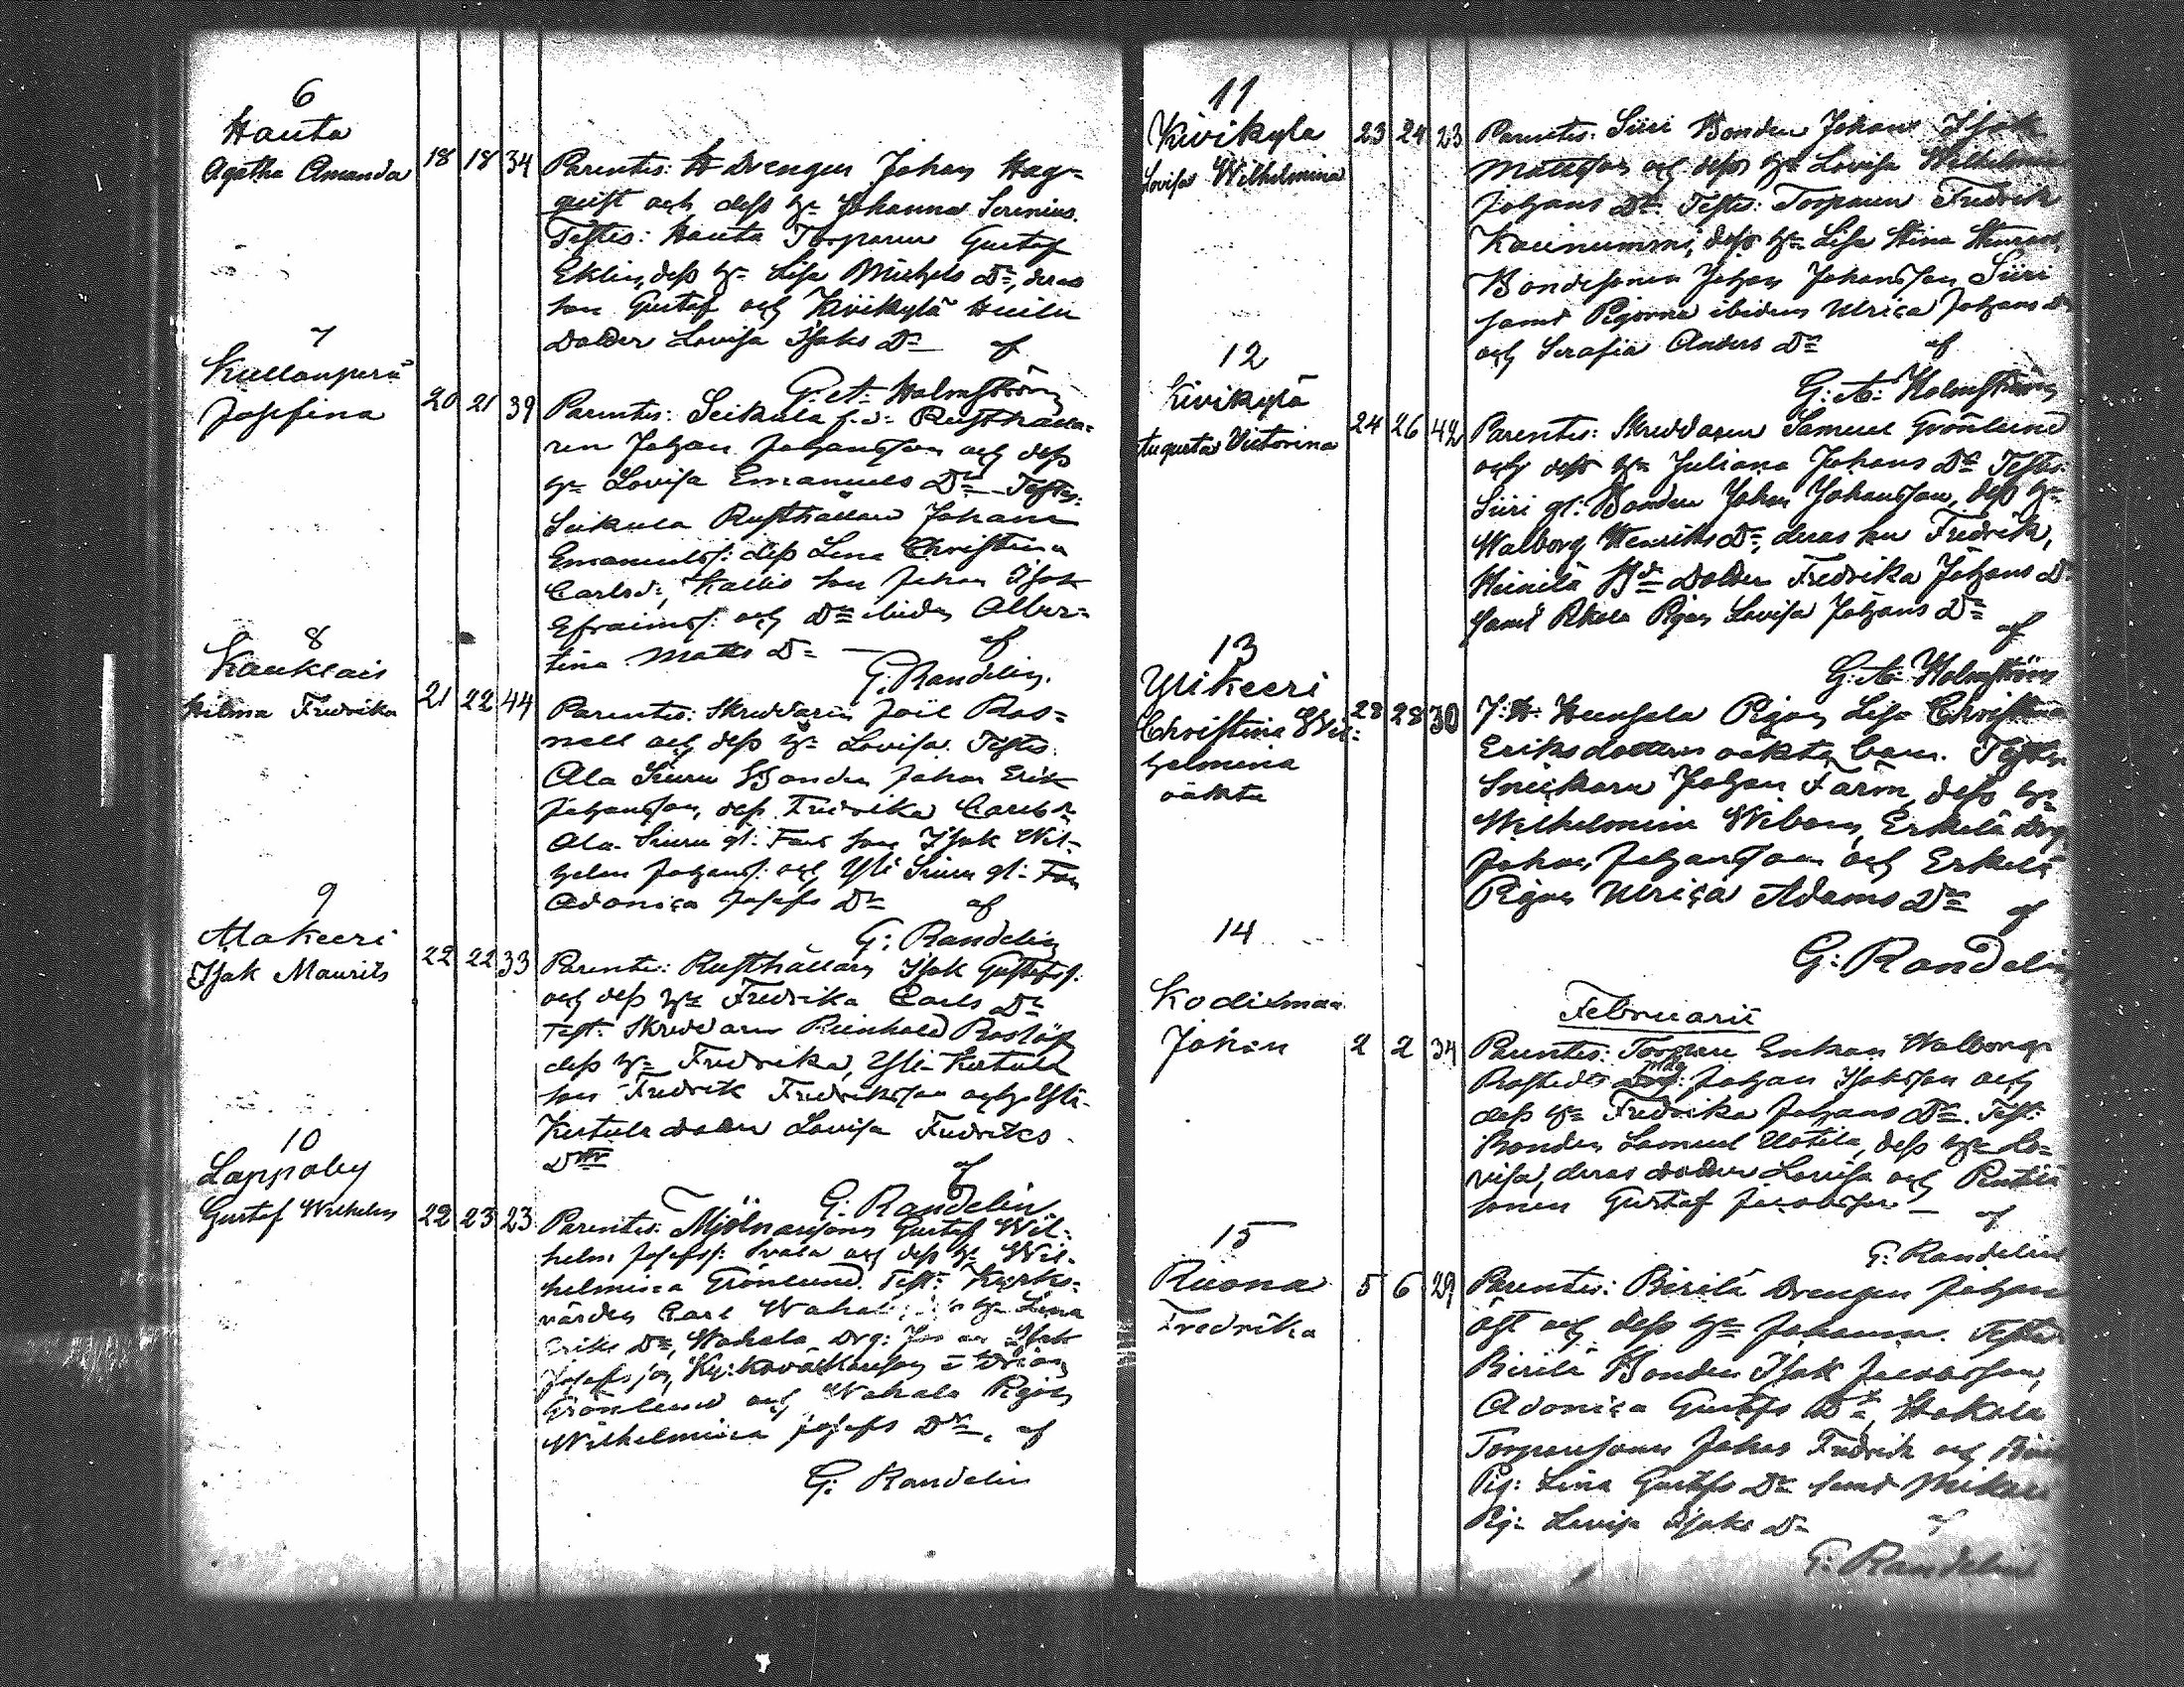 6
Hauta
Agatha Amanda 18 18 34
Parentes: H Drengen Johan Hag-
quist och dess H:u Johanna Serenius.
Testes: Hauta Torparen Gustaf
Eklin, dess H:u Lisa Michels D:r, deras
son Gustaf och Kivikylä
Dotter Lovisa Isaks D:r af
G: A: Holmström
7
Kullanperä
Josefina 20 21 39
Parentes: Seikula f.d: Rusthålla-
ren Johan Johansson och dess
H:u Lovisa Emanuels D:r Testes:
Seikula Rusthållare Johan
Emanuelss: dess Lena Christina
Carlsd:, Kallis son Johan Isak
Efraimss: och D:r ibidm Alber-
tina Matts D:r af
G: Randelin.
8
Kauklais
Hilma Fredrika 21 22 44
Parentes: Skreddaren Joël Ros-
nell och dess H:u Lovisa. Testes:
Ala Siuru Bonden Johan Erik
Johansson, dess Fredrika Carls D:r
Ala Siuru gl: Fars son Isak Wil-
helm Johanss: och Yli Siuru gl: Fars
Adonica Josefs D:r af
G: Randelin
9
Alakeeri
Isak Maurits 22 22 33
Parente: Rusthållaren Isak Gustafss:
och dess H:u Fredrika Carls D:r
Test: Skreddaren Reinhold Roslöf
dess H:u Fredrika, Yli-Kertula
son Fredrik Fredriksson och Yli-
Kertula dotter Lovisa Fredriks
D:r af
G: Randelin
10
Lappoby
Gustaf Wilhelm 22 23 23
Parentes: Mjölnaresonen Gustaf Wil-
helm Josefss: Svala och dess H:u Wil-
helmina Grönlund. Test: Kyrko-
värden Carl Wahala H:u Lena
Eriks D:r, Wahala Drg: Isak
Josefsson,
Grönlund och Wahala Pigan
Wilhelmina Josefs D:r. af
G: Randelin
11
Kivikylä
Lovisa Wilhelmina 23 24 23
Parentes: Siiri Bonden Johan Isak
Mattsson och dess H:u Lovisa Wilhelmina
Johans D:r Testes: Torparen Fredrik
Kaunummi, dess H:u Lisa Stina
Bondesonen Johan Johansson Siiri
samt Pigorna ibidem Ulrica Johans D:r
och Serafia Anders D:r af
G: A: Holmström
12
Kivikylä
Augusta Victorina 24 26 42
Parentes: Skreddaren Samuel Grönlund
och dess H:u Juliana Johans D:r Testes:
Siiri gl: Bonden Johan Johansson, dess H:u
Walborg Henriks D:r, deras son Fredrik,
Heinilä B:de Dotter Fredrika Johans D:r
samt Pigan Lovisa Johans D:r
af
G: A: Holmström
13
Ylikeeri
Christina Wil-
helmina
oäkta 28 28 30
Y: K: Pigan Lisa Christina
Eriksdotters oäkta barn. Testes:
Snickare Johan Färm, dess H:u
Wilhelmina Wiberg, Erkelä Drg
Johan Johansson och Erkelä
Pigan Ulrica Adams D:r af
G: Randelin
Februarii
14
Kodixmaa
Johan 2 2 34
Parentes: Torpare Enkan Walborg
Rostedts Måg: Johan Isaksson och
dess H:u Fredrika Johans D:r. Test:
Bonden Samuel Uotila, dess H:u Lo-
visa, deras dotter Lovisa och Penttilä
sonen Gustaf Jacobsson af
G: Randelin
15
Ruona
Fredrika 5 6 29
Parentes: Birilä Drengen Johan
Öst och dess H:u Johanna. Testes:
Birilä Bonden Isak Jacobsson,
Adonica Gustafs D:r, Hakala
Torparesonen Johan Fredrik och
Pig: Lena Gustafs D:r samt
Pig: Lovisa Isaks D:r af
G: Randelin